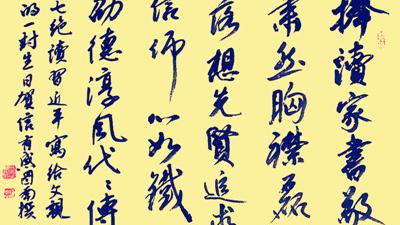 捧讀家書敬
肅然胸襟磊
落想先賢追求
信仰心如鐵
劭德淳風代代傳
七绝讀習近平寫給父親
的一封生日賀信有感周南撰